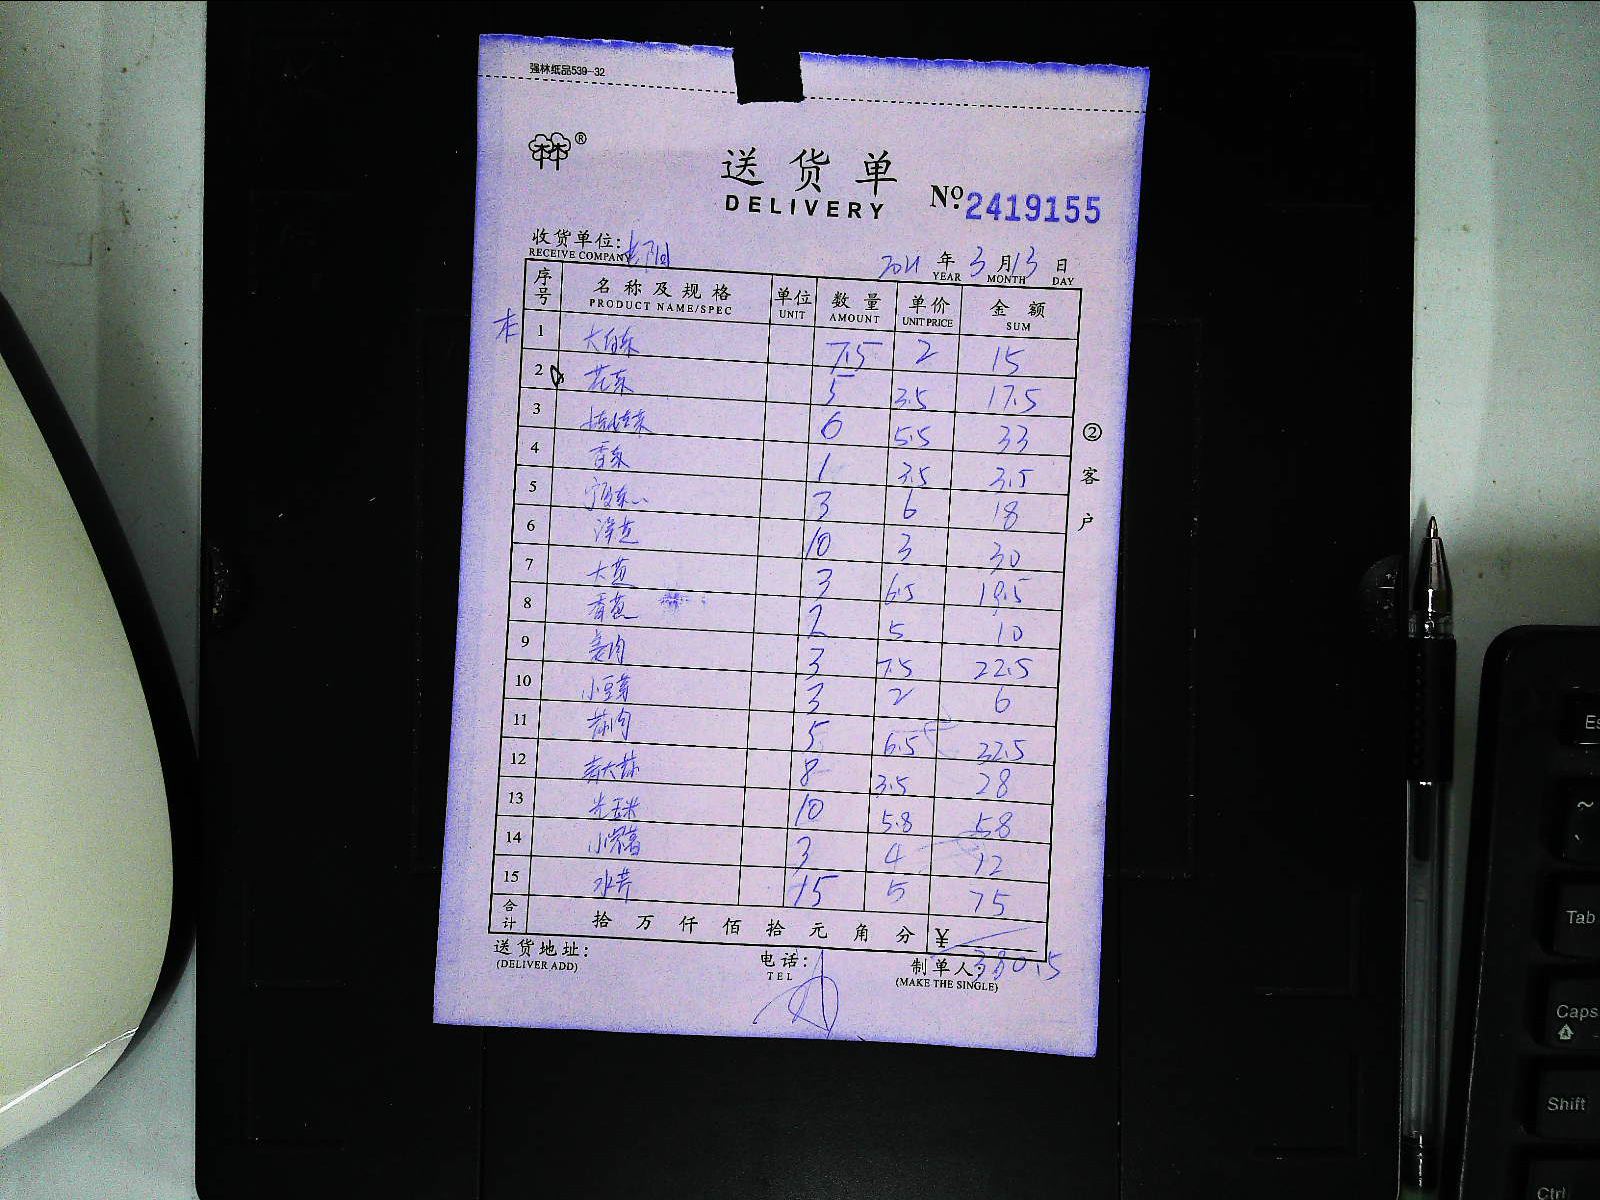 强林纸品539-32
®
送货单
DELIVERY
No. 2419155
收货单位:
RECEIVE COMPANY
2021 年 3 月 13 日
YEAR MONTH DAY
序号 名称及规格 单位 数量 单价 金额
PRODUCT NAME/SPEC UNIT AMOUNT UNIT PRICE SUM
1 大白菜 7.5 2 15
2 花菜 5 3.5 17.5
3 6 5.5 33
4 香菜 1 3.5 3.5
5 3 6 18
6 洋芋 10 3 30
7 大葱 3 6.5 19.5
8 香葱 2 5 10
9 姜肉 3 7.5 22.5
10 小豆芽 3 2 6
11 蒜肉 5 6.5 32.5
12 8 3.5 28
13 10 5.8 58
14 小紫薯 3 4 12
15 水芹 15 5 75
合计 拾 万 仟 佰 拾 元 角 分 ¥
380.5
送货地址: 电话: 制单人:
(DELIVER ADD) TEL (MAKE THE SINGLE)
②客户
Es
~
Tab
Caps
Shift
Ctrl